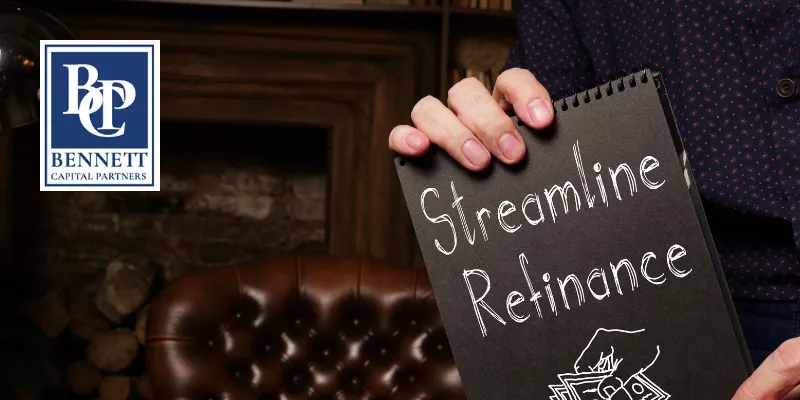 BCP
BENNETT
CAPITAL PARTNERS
Streamline
Refinance